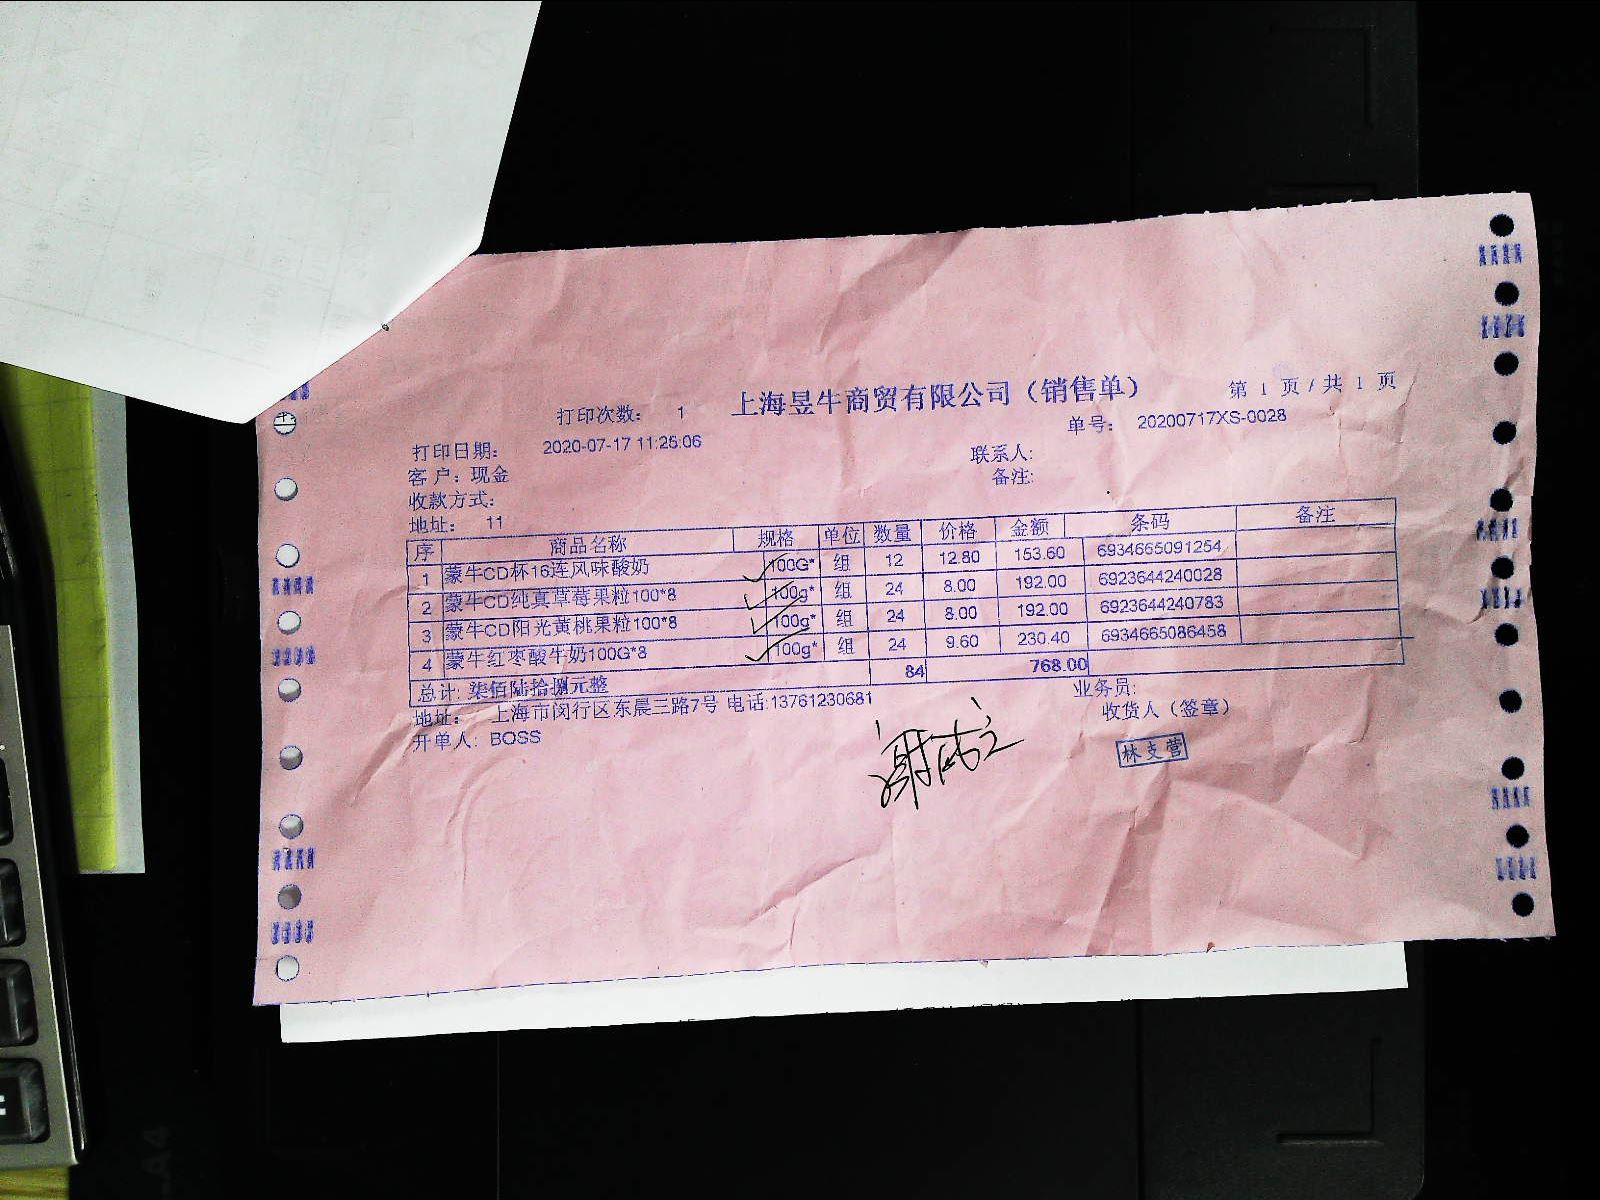 上海昱牛商贸有限公司（销售单） 第 1 页 / 共 1 页
打印次数： 1
单号： 20200717XS-0028
打印日期： 2020-07-17 11:25:06
联系人:
客 户：现金
备注:
收款方式:
地址： 11
序 商品名称 规格 单位 数量 价格 金额 条码 备注
1 蒙牛CD杯16连风味酸奶 100G* 组 12 12.80 153.60 6934665091254
2 蒙牛CD纯真草莓果粒100*8 100g* 组 24 8.00 192.00 6923644240028
3 蒙牛CD阳光黄桃果粒100*8 100g* 组 24 8.00 192.00 6923644240783
4 蒙牛红枣酸牛奶100G*8 100g* 组 24 9.60 230.40 6934665086458
总计: 柒佰陆拾捌元整 84 768.00
地址： 上海市闵行区东晨三路7号 电话:13761230681 业务员:
开单人: BOSS 收货人（签章）
林支营